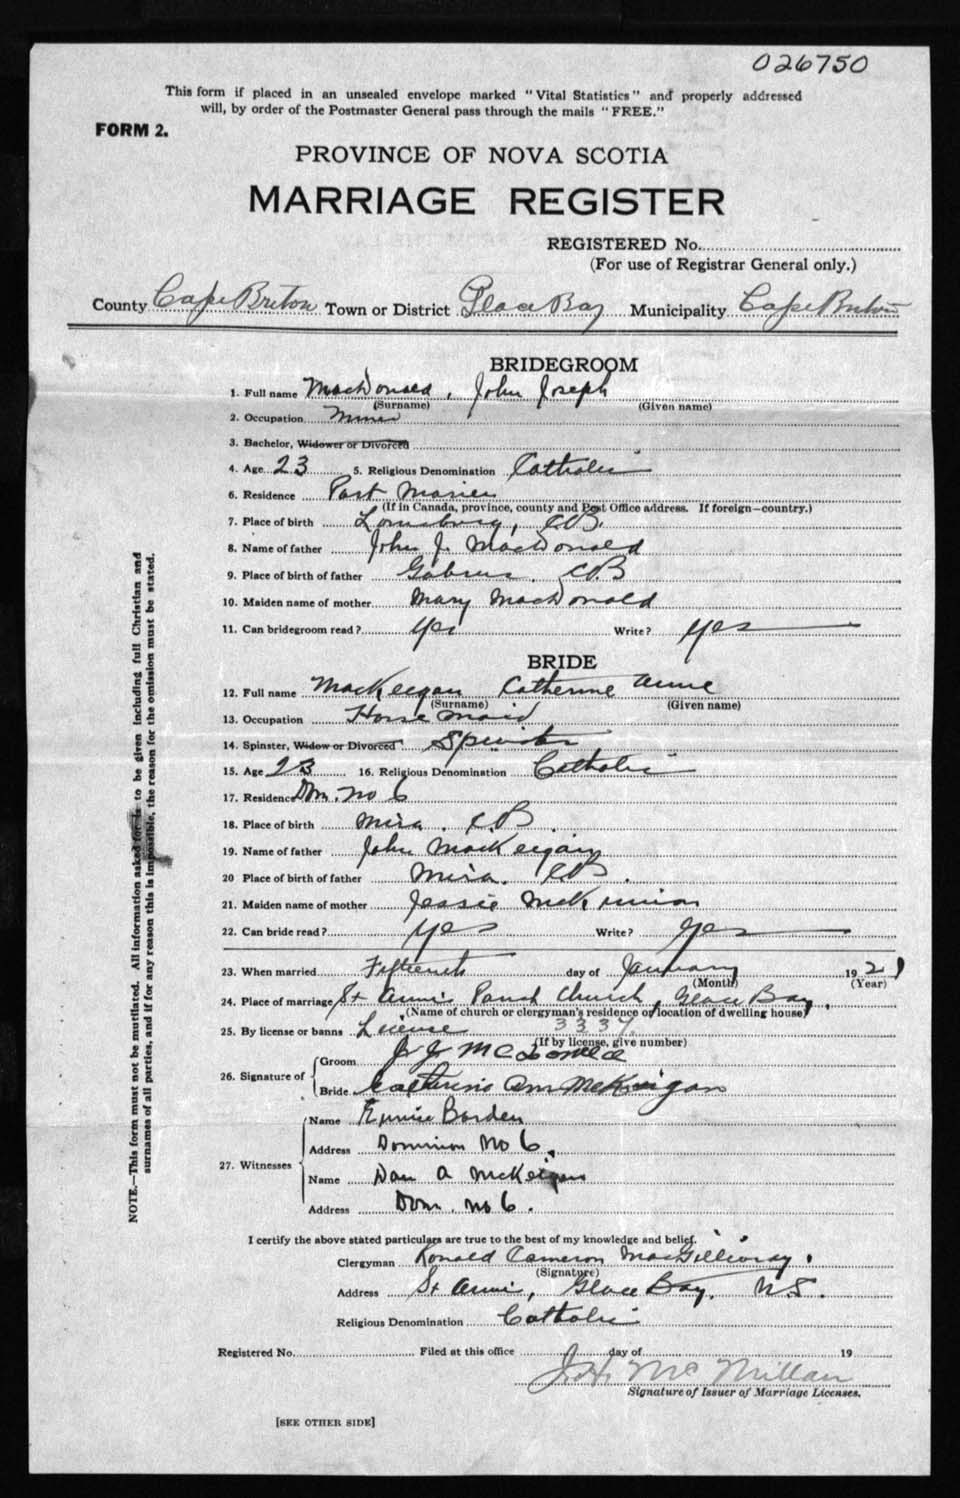 026750
This form if placed in an unsealed envelope marked "Vital Statistics" and properly addressed
will, by order of the Postmaster General pass through the mails "FREE."
FORM 2.
PROVINCE OF NOVA SCOTIA
MARRIAGE REGISTER
REGISTERED No.
(For use of Registrar General only.)
County Cape Breton Town or District Glace Bay Municipality Cape Breton
BRIDEGROOM
1. Full name MacDonald, John Joseph
(Surname) (Given name)
2. Occupation Miner
3. Bachelor, Widower or Divorced
4. Age 23 5. Religious Denomination Catholic
6. Residence Port Morien
(If in Canada, province, county and Post Office address. If foreign—country.)
7. Place of birth Louisburg, C.B.
8. Name of father John J. MacDonald
9. Place of birth of father Gabrus. C.B
10. Maiden name of mother Mary MacDonald
11. Can bridegroom read? Yes Write? Yes
BRIDE
12. Full name MacKeegan Catherine Anne
(Surname) (Given name)
13. Occupation House Maid
14. Spinster, Widow or Divorced Spinster
15. Age 23 16. Religious Denomination Catholic
17. Residence Dom. No 6
18. Place of birth Mira. C.B.
19. Name of father John MacKeigan
20 Place of birth of father Mira. C.B.
21. Maiden name of mother Jessie McKinnon
22. Can bride read? Yes Write? Yes
23. When married Fifteenth day of January 1921
(Month) (Year)
24. Place of marriage St Anne's Parish Church, Glace Bay.
(Name of church or clergyman's residence or location of dwelling house)
25. By license or banns License 3337
(If by license, give number)
26. Signature of Groom J J McDonald
Bride Catherine Ann McKeigan
27. Witnesses
Name Borden
Address Dominion No 6.
Name Dan A McKeigan
Address Dom. No 6.
I certify the above stated particulars are true to the best of my knowledge and belief.
Clergyman Ronald Cameron MacGillivray.
(Signature)
Address St Anne's, Glace Bay. N.S.
Religious Denomination Catholic
Registered No. Filed at this office day of 19
J.H. McMillan
Signature of Issuer of Marriage Licenses.
[SEE OTHER SIDE]
NOTE.—This form must not be mutilated. All information asked for is to be given including full Christian and
surnames of all parties, and if for any reason this is impossible, the reason for the omission must be stated.